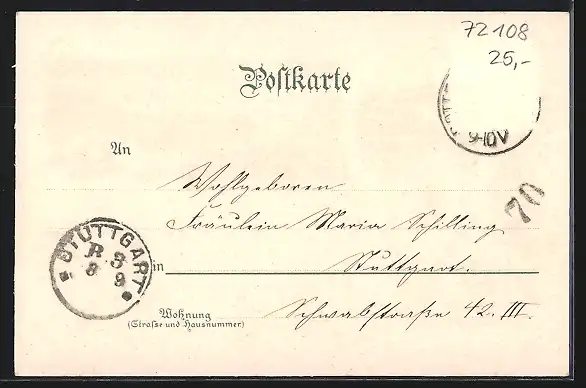 72108
25,-
Postkarte
9-10V
An
Wohlgeboren
70
Fräulein Maria Schilling
STUTTGART
R. 3
8 9
in Stuttgart.
Wohnung
(Strasse und Hausnummer)
Schwabstraße 42. III.